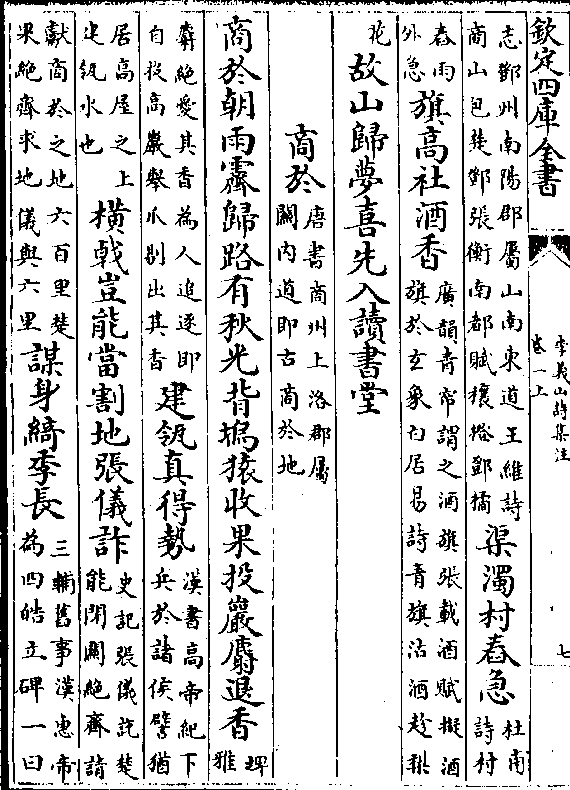 欽定四庫全書
李義山詩集注
卷一上
七
志鄧州南陽郡屬山南東道王維詩
商山包楚鄧張衡南都賦穰橙鄧橘
渠濁村舂急
杜甫
詩村
舂雨
外急
旗高社酒香
廣韻青帘謂之酒旗張載酒賦擬酒
旗於玄象白居易詩青旗沽酒趁梨
花
故山歸夢喜先入讀書堂
商於
唐書商州上洛郡屬
關内道即古商於地
商於朝雨霽歸路有秋光背塢猿收果投巖麝退香
埤
雅
麝絶愛其香為人追逐即
自投高巖舉爪剔出其香
建瓴真得勢
漢書高帝紀下
兵於諸侯譬猶
居高屋之上
建瓴水也
横戟豈能當割地張儀詐
史記張儀説楚
能閉關絶齊請
獻商於之地六百里楚
果絶齊求地儀與六里
謀身綺季長
三輔舊事漢惠帝
為四皓立碑一曰